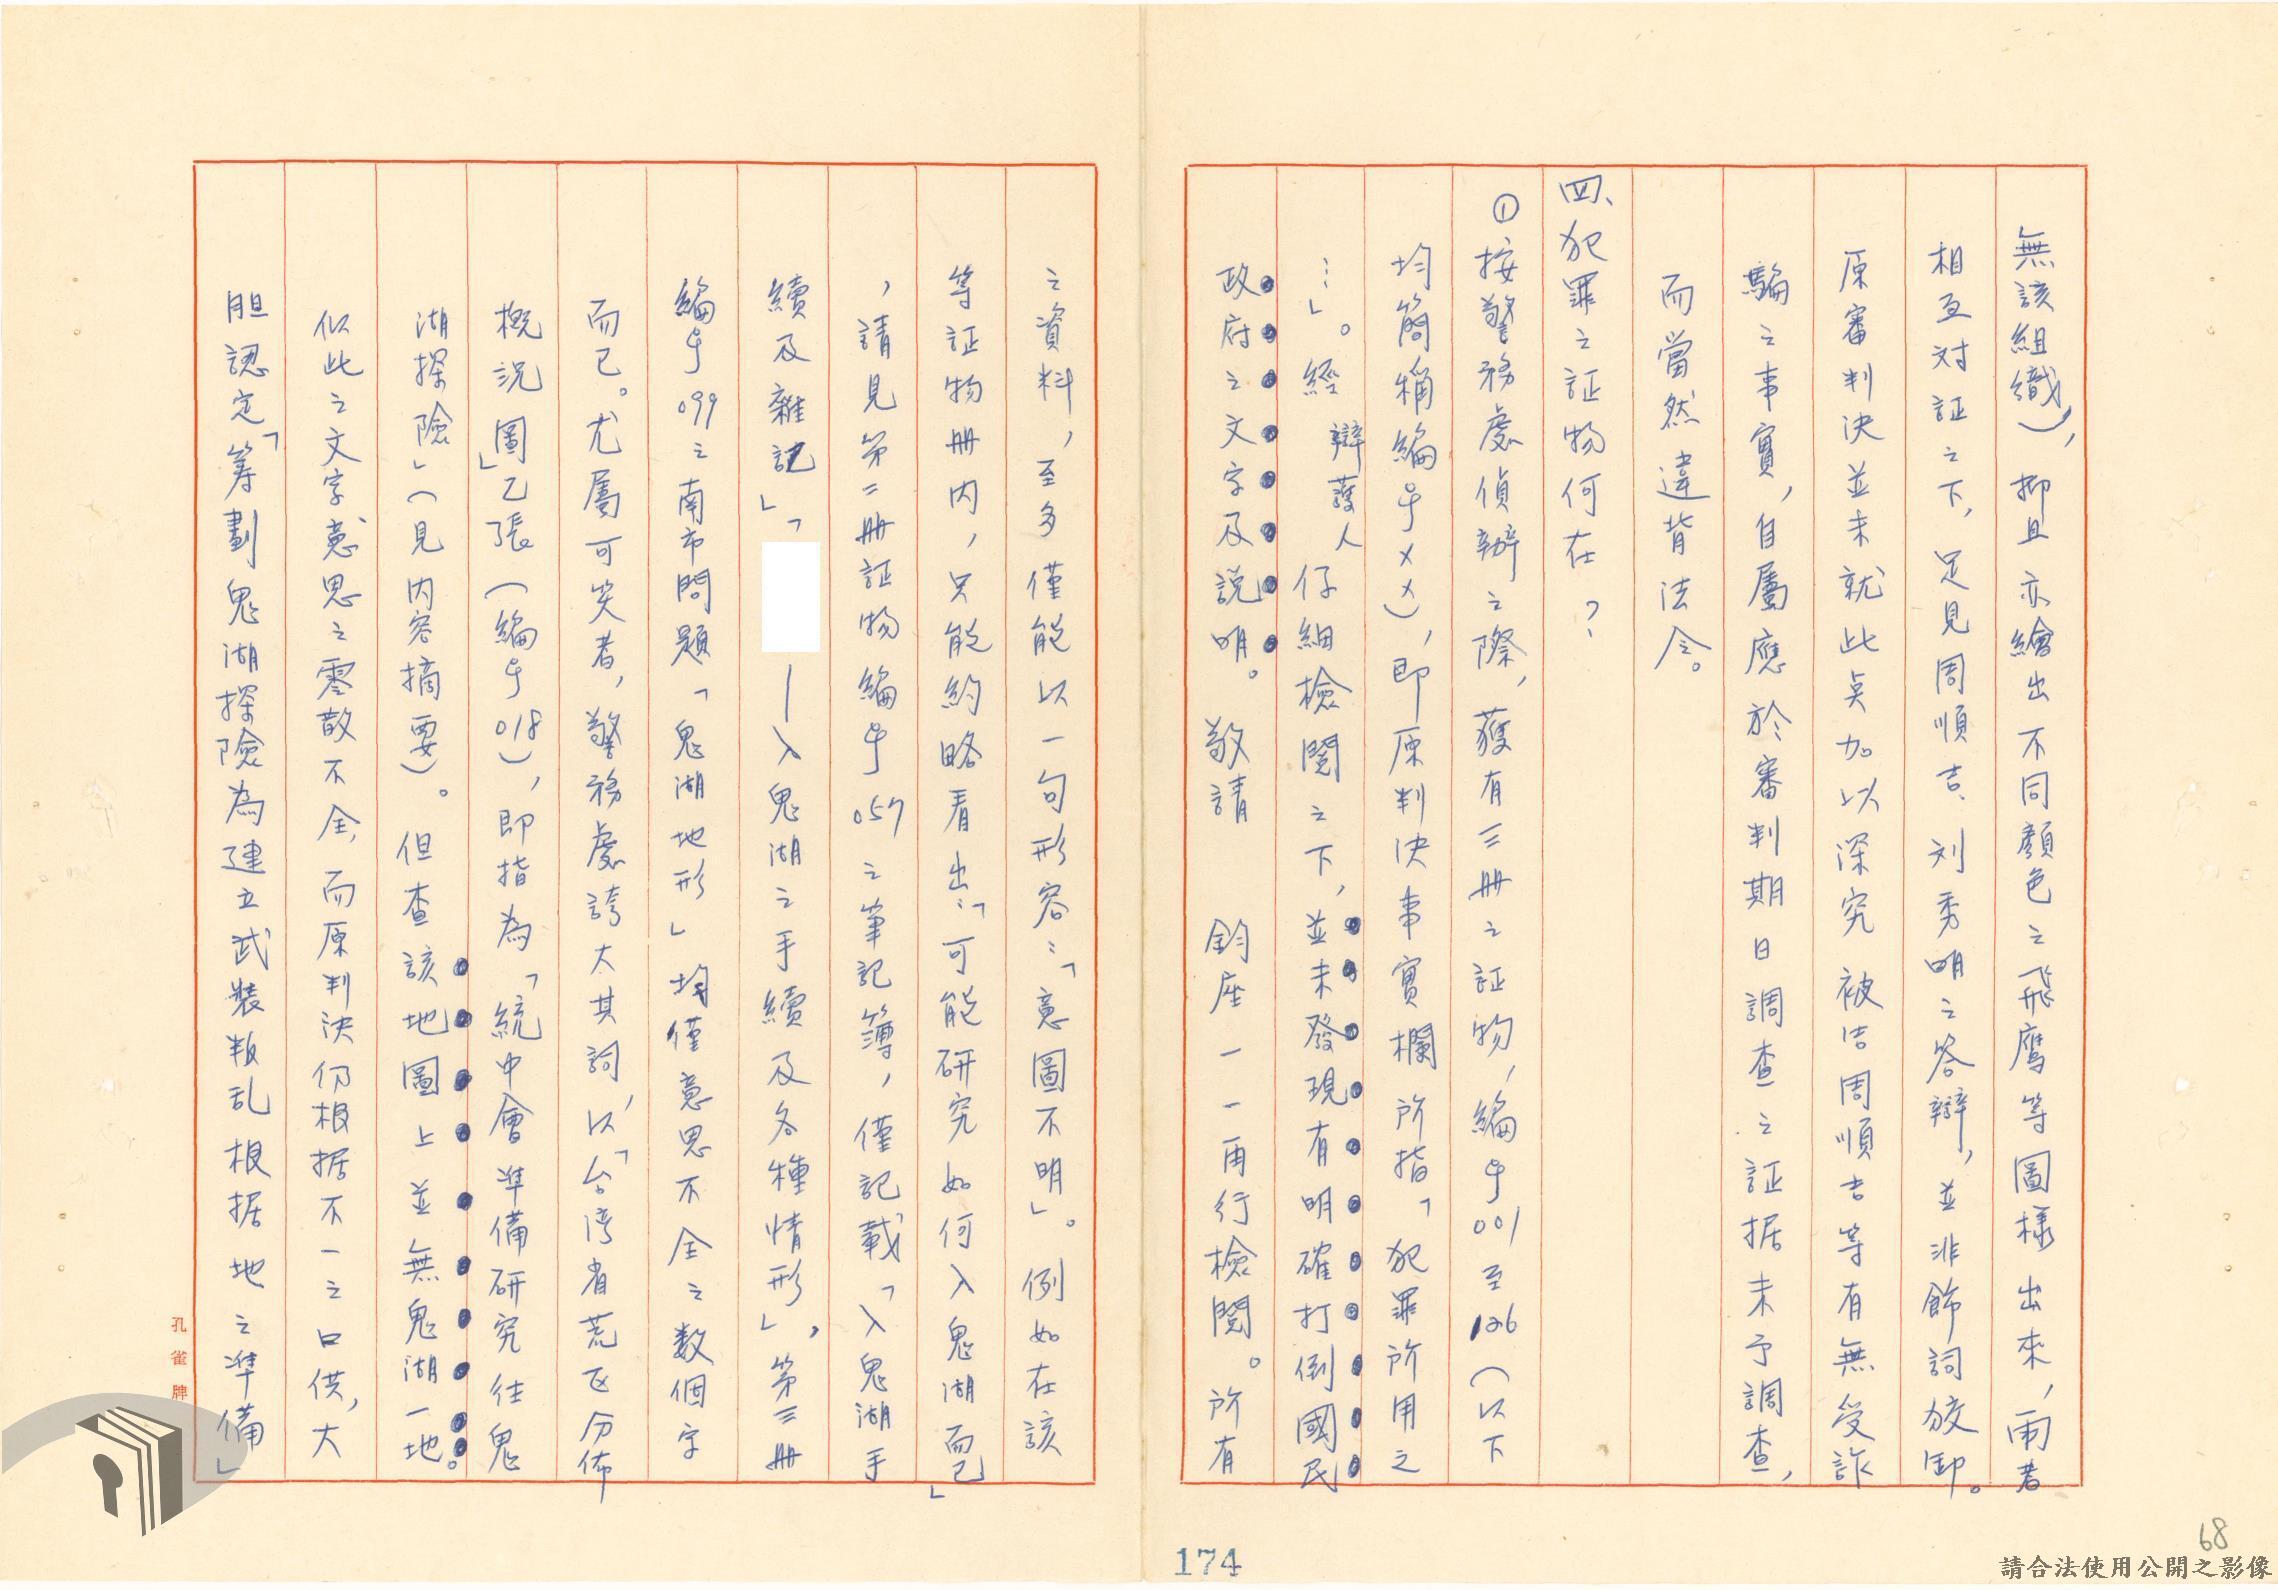 無該組織），抑且亦繪出不同顏色之飛鷹等圖樣出來，兩者
相互对証之下，足見周順吉、刘秀明之答辯，並非飾詞狡卸。
原審判決並未就此点加以深究被告周順吉等有無受詐
騙之事實，自屬應於審判期日調查之証据未予調查，
而當然違背法令。
四、犯罪之証物何在？
①按警務處偵辦之際，獲有三册之証物，編号001至126（以下
均簡稱編号××），即原判決事實欄所指「犯罪所用之
…」。經辯護人仔細檢閱之下，並未發現有明確打倒國民
政府之文字及説明。敬請　鈞座一一再行檢閱。所有
之資料，至多僅能以一句形容：「意圖不明」。例如在該
等証物册内，只能約略看出：「可能研究如何入鬼湖而已」
，請見第二册証物編号057之筆記簿，僅記載「入鬼湖手
續及雜記」「　　—入鬼湖之手續及各種情形」，第三册
編号099之南市問題「鬼湖地形」均僅意思不全之数個字
而已。尤屬可笑者，警務處誇大其詞，以「台湾省荒区分佈
概況圖」乙張（編号018），即指為「統中會準備研究往鬼
湖探險」（見内容摘要）。但查該地圖上並無鬼湖一地。
似此之文字意思之零散不全，而原判決仍根据不一之口供，大
胆認定「筹劃鬼湖探險為建立武裝叛乱根据地之準備」
孔雀牌
174
68
請合法使用公開之影像